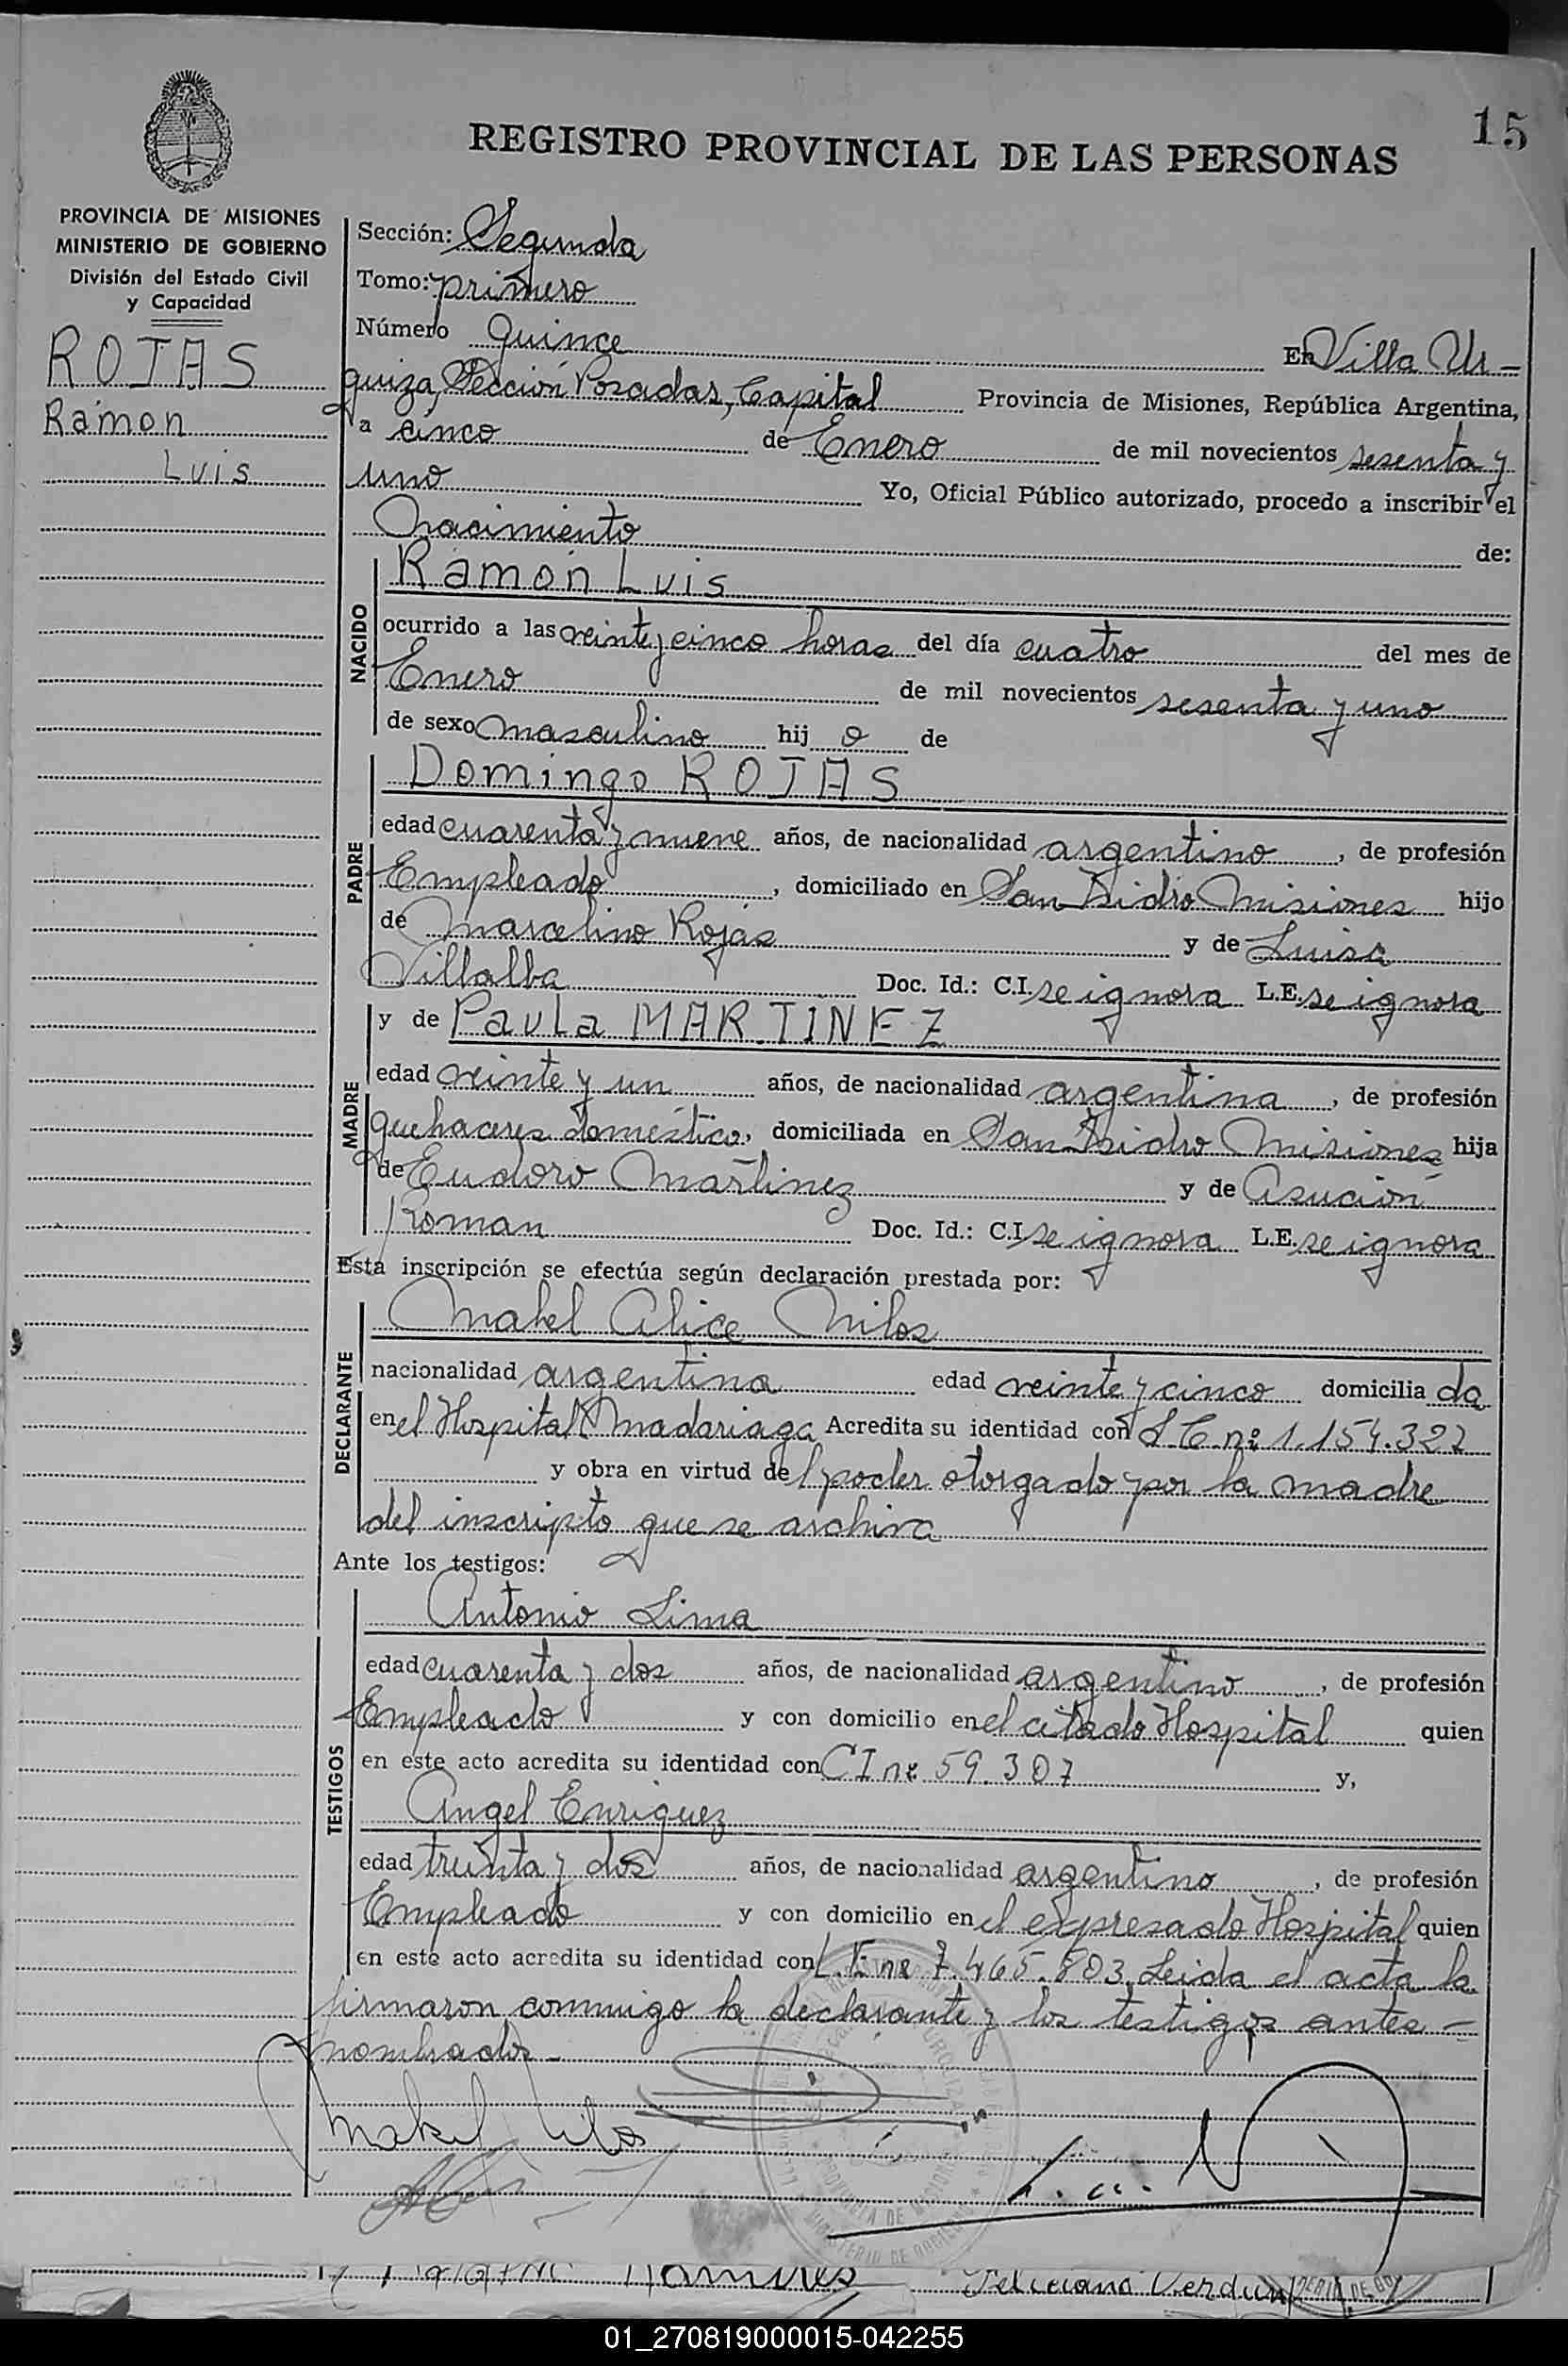 15
REGISTRO PROVINCIAL DE LAS PERSONAS
PROVINCIA DE MISIONES
MINISTERIO DE GOBIERNO
División del Estado Civil
y Capacidad
ROJAS
Ramón
Luis
Sección: Segunda
Tomo: primero
Número quince En Villa Ur-
quiza, Sección Posadas, Capital Provincia de Misiones, República Argentina,
a cinco de Enero de mil novecientos sesenta y
uno Yo, Oficial Público autorizado, procedo a inscribir el
Nacimiento de:
NACIDO
Ramón Luis
ocurrido a las veinte y cinco horas del día cuatro del mes de
Enero de mil novecientos sesenta y uno
de sexo masculino hijo de
PADRE
Domingo ROJAS
edad cuarenta y nueve años, de nacionalidad argentino, de profesión
Empleado, domiciliado en San Isidro Misiones hijo
de Marcelino Rojas y de Luisa
Villalba Doc. Id.: C.I. se ignora L.E. se ignora
MADRE
y de Paula MARTINEZ
edad veinte y un años, de nacionalidad argentina, de profesión
quehaceres domestico, domiciliada en San Isidro Misiones hija
de Eudoro Martinez y de Asución
Roman Doc. Id.: C.I. se ignora L.E. se ignora
Esta inscripción se efectúa según declaración prestada por:
DECLARANTE
Mabel Alice Milos
nacionalidad argentina edad veinte y cinco domiciliada
en el Hospital Madariaga Acredita su identidad con L.C. nº 1.154.322
y obra en virtud del poder otorgado por la madre
del inscripto que se archiva
Ante los testigos:
TESTIGOS
Antonio Lima
edad cuarenta y dos años, de nacionalidad argentino, de profesión
Empleado y con domicilio en el citado Hospital quien
en este acto acredita su identidad con CI nº 59.307 y,
Angel Enriquez
edad treinta y dos años, de nacionalidad argentino, de profesión
Empleado y con domicilio en el expresado Hospital quien
en este acto acredita su identidad con L.E. nº 7.465.803. Leida el acta la
firmaron conmigo la declarante y los testigos antes-
nombrados-
Mabel Milos
Feliciana Verdun
01_270819000015-042255